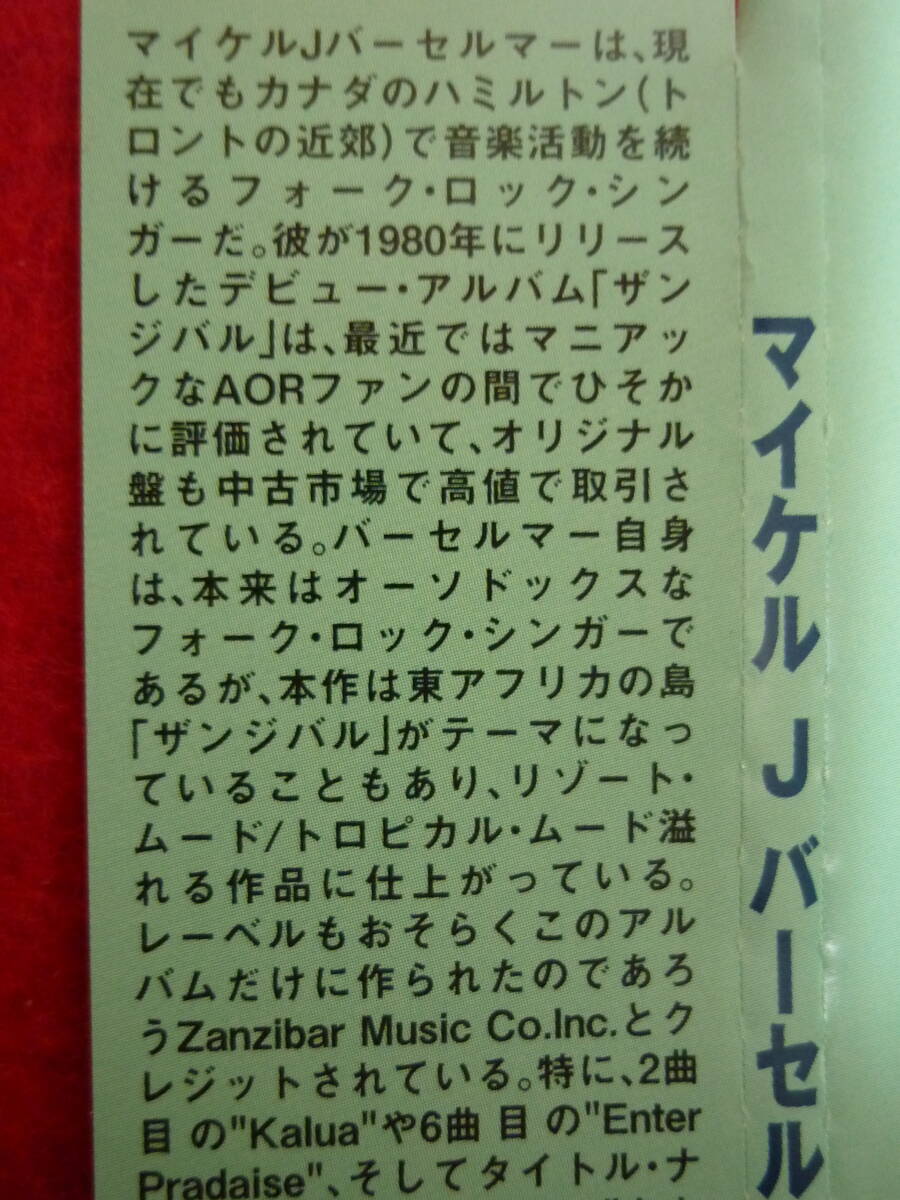 マイケルJバーセルマーは、現
在でもカナダのハミルトン(ト
ロントの近郊)で音楽活動を続
けるフォーク・ロック・シン
ガーだ。彼が1980年にリリース
したデビュー・アルバム「ザン
ジバル」は、最近ではマニアッ
クなAORファンの間でひそか
に評価されていて、オリジナル
盤も中古市場で高値で取引さ
れている。バーセルマー自身
は、本来はオーソドックスな
フォーク・ロック・シンガーで
あるが、本作は東アフリカの島
「ザンジバル」がテーマになっ
ていることもあり、リゾート・
ムード/トロピカル・ムード溢
れる作品に仕上がっている。
レーベルもおそらくこのアル
バムだけに作られたのであろ
うZanzibar Music Co.Inc.とク
レジットされている。特に、2曲
目の"Kalua"や6曲目の"Enter
Pradaise"、そしてタイトル・ナ
マイケル J バーセル